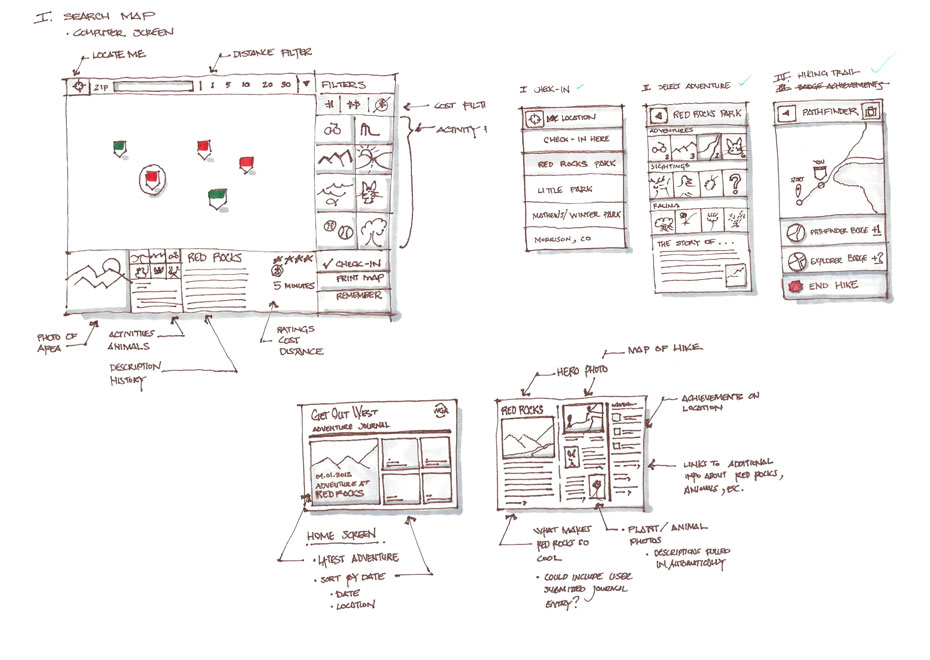 I. SEARCH MAP
• COMPUTER SCREEN
LOCATE ME
DISTANCE FILTER
ZIP
1 5 10 20 50
FILTERS
COST FILT
ACTIVITY
RED ROCKS
5 MINUTES
✓ CHECK-IN
PRINT MAP
REMEMBER
PHOTO OF
AREA
ACTIVITIES
ANIMALS
DESCRIPTION
HISTORY
RATINGS
COST
DISTANCE
I CHECK-IN
LOCATION
CHECK-IN HERE
RED ROCKS PARK
LITTLE PARK
MATHENS/WINTER PARK
MORRISON, CO
II. SELECT ADVENTURE
RED ROCKS PARK
ADVENTURES
2 3 2
SIGHTINGS
?
FAUNA
THE STORY OF...
III. HIKING TRAIL
III. BADGE ACHIEVEMENTS
PATHFINDER
YOU
START
PATHFINDER BADGE +1
EXPLORER BADGE +?
END HIKE
GET OUT WEST
ADVENTURE JOURNAL
09.01.2012
ADVENTURE AT
RED ROCKS
HOME SCREEN
• LATEST ADVENTURE
• SORT BY DATE
• DATE
• LOCATION
HERO PHOTO
MAP OF HIKE
RED ROCKS
ACHIEVEMENTS ON
LOCATION
LINKS TO ADDITIONAL
INFO ABOUT RED ROCKS,
ANIMALS, EC.
WHAT MAKES
RED ROCKS SO
COOL
• COULD INCLUDE USER
SUBMIZED JOURNAL
ENTRY?
• PLANT/ANIMAL
PHOTOS
• DESCRIPTIONS PULLED
IN AUTOMATICALLY